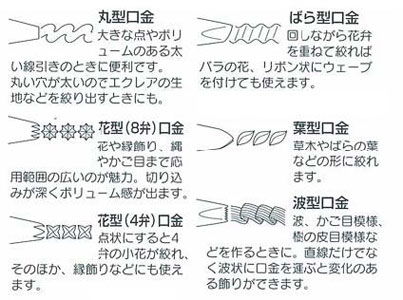 丸型口金
大きな点やボリ
ュームのある太
い線引きのときに便利です。
丸い穴が太いのでエクレアの生
地などを絞り出すときにも。
花型(8弁)口金
花や縁飾り、縄
やかご目まで応
用範囲の広いのが魅力。切り込
みが深くボリューム感が出ます。
花型(4弁)口金
点状にすると4
弁の小花が絞れ、
そのほか、縁飾りなどにも使え
ます。
ばら型口金
回しながら花弁
を重ねて絞れば
バラの花、リボン状にウェーブ
を付けても使えます。
葉型口金
草木やばらの葉
などの形に絞れ
ます。
波型口金
波、かご目模様、
樹の皮目模様な
どを作るときに。直線だけでな
く波状に口金を運ぶと変化のあ
る飾りができます。